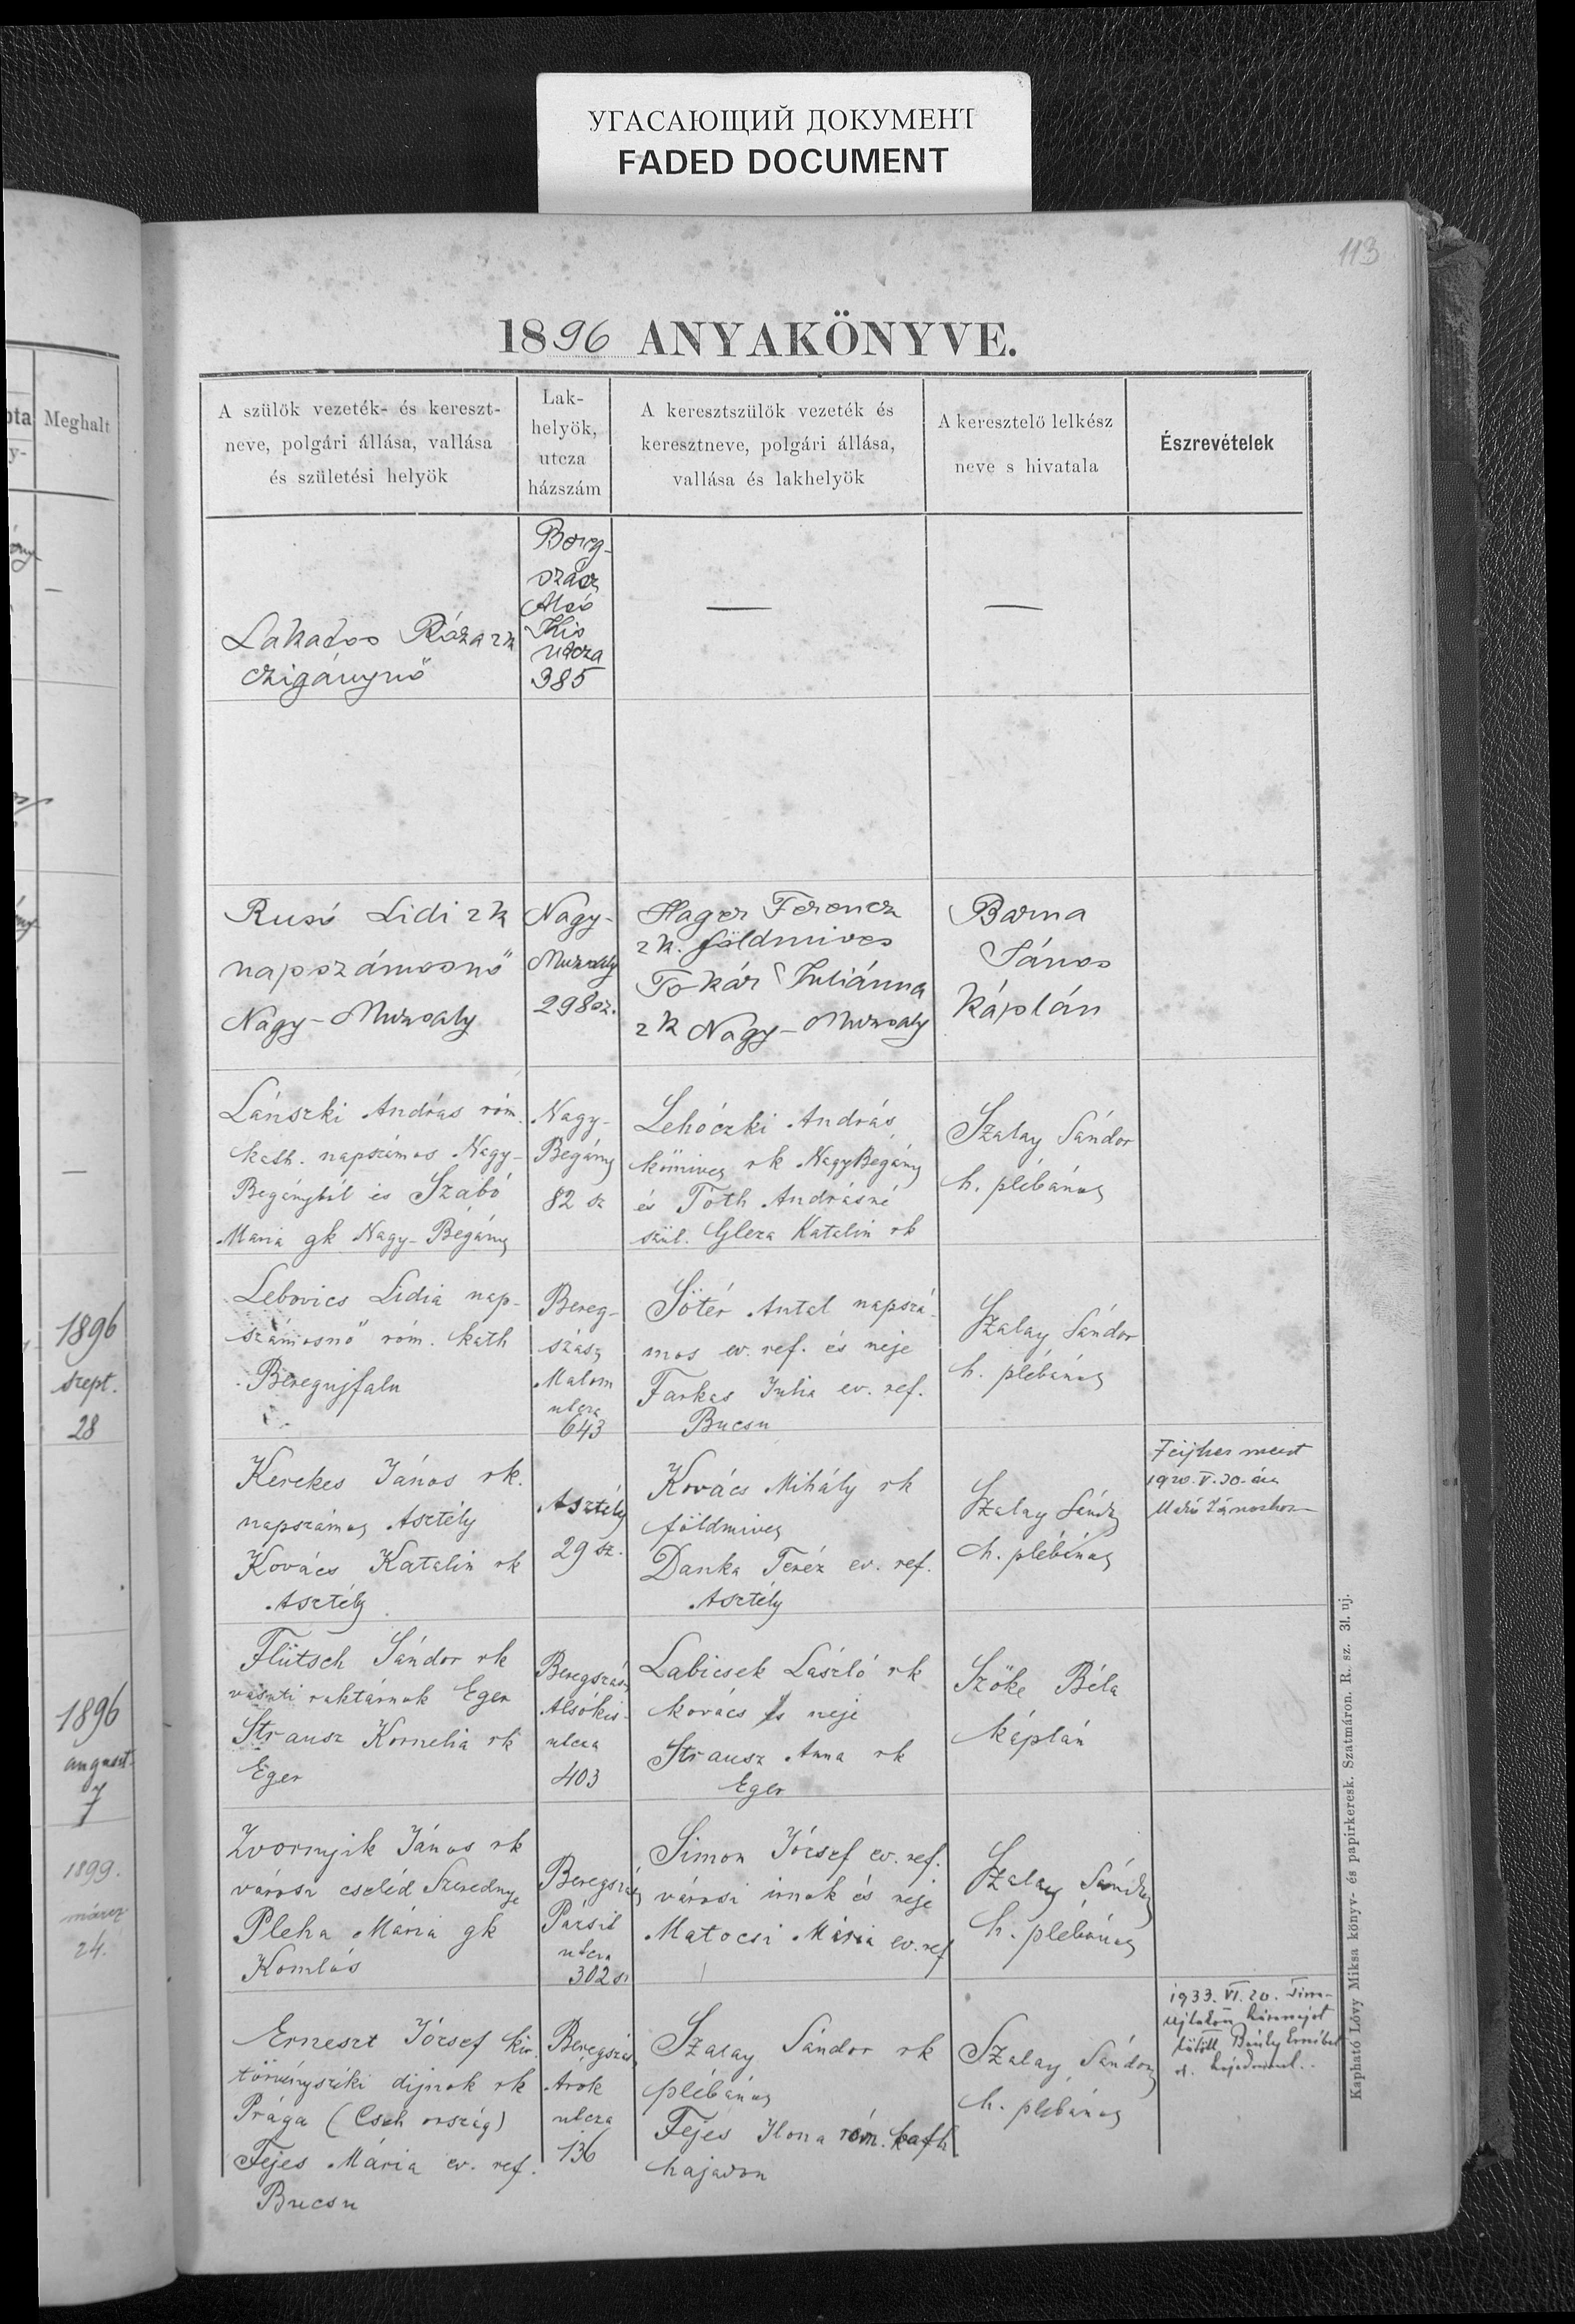 УГАСАЮЩИЙ ДОКУМЕНТ
FADED DOCUMENT
113
1896 ANYAKÖNYVE.
Meghalt
A szülök vezeték- és kereszt-
neve, polgári állása, vallása
és születési helyök
Lak-
helyök,
utcza
házszám
A keresztszülök vezeték és
keresztneve, polgári állása,
vallása és lakhelyök
A keresztelö lelkész
neve s hivatala
Észrevételek
Lakatos Róza rk
czigánynő
Bereg-
szász
Alsó
Kis
utcza
385
—
—
Rusó Lidi rk
napszámosnő
Nagy-Muzsaly
Nagy-
Muzsaly
298 sz.
Hager Ferencz
rk. földmives
Tokár Juliánna
rk Nagy-Muzsaly
Barna
János
káplán
Lánszki András róm.
kath. napszámos Nagy-
Begányból és Szabó
Maria gk Nagy-Begány
Nagy-
Begány
82 sz
Lehóczki András
kőmives rk Nagy Begány
és Tóth Andrásné
szül. Gleza Katalin rk
Szalay Sándor
h. plébános
1896
szept.
28
Lebovics Lidia nap-
számosnő róm. kath
Beregujfalu
Bereg-
szász
Malom
utcza
643
Sötér Antal napszá-
mos ev. ref. és neje
Farkas Julia ev. ref.
Bucsu
Szalay Sándor
h. plébános
Kerekes János rk.
napszámos Asztély
Kovács Katalin rk
Asztély
Asztély
29 sz.
Kovács Mihály rk
földmives
Danka Teréz ev. ref.
Asztély
Szalay Sándor
h. plébános
Férjhez ment
1920. V. 30-án
1896
august.
7
Flütsch Sándor rk
vasuti raktárnok Eger
Strausz Kornelia rk
Eger
Beregszász
Alsókis-
utcza
403
Labicsek László rk
kovács és neje
Strausz Anna rk
Eger
Szőke Béla
káplán
1899.
márcz
24.
Zvornyik János rk
városi cseléd Szerednye
Pleha Mária gk
Komlós
Beregszász
Pázsit
utcza
302 sz
Simon József ev. ref.
városi irnok és neje
Matocsi Mária ev. ref
Szalay Sándor
h. plébános
Erneszt József kir.
törvényszéki dijnok rk
Prága (Cseh ország)
Fejes Mária ev. ref.
Bucsu
Beregszász
Árok
utcza
136
Szalay Sándor rk
plébános
Fejes Ilona róm. kath
hajadon
Szalay Sándor
h. plébános
1933. VI. 20.
Kapható Lövy Miksa könyv- és papirkeresk. Szatmáron. R. sz. 31. uj.